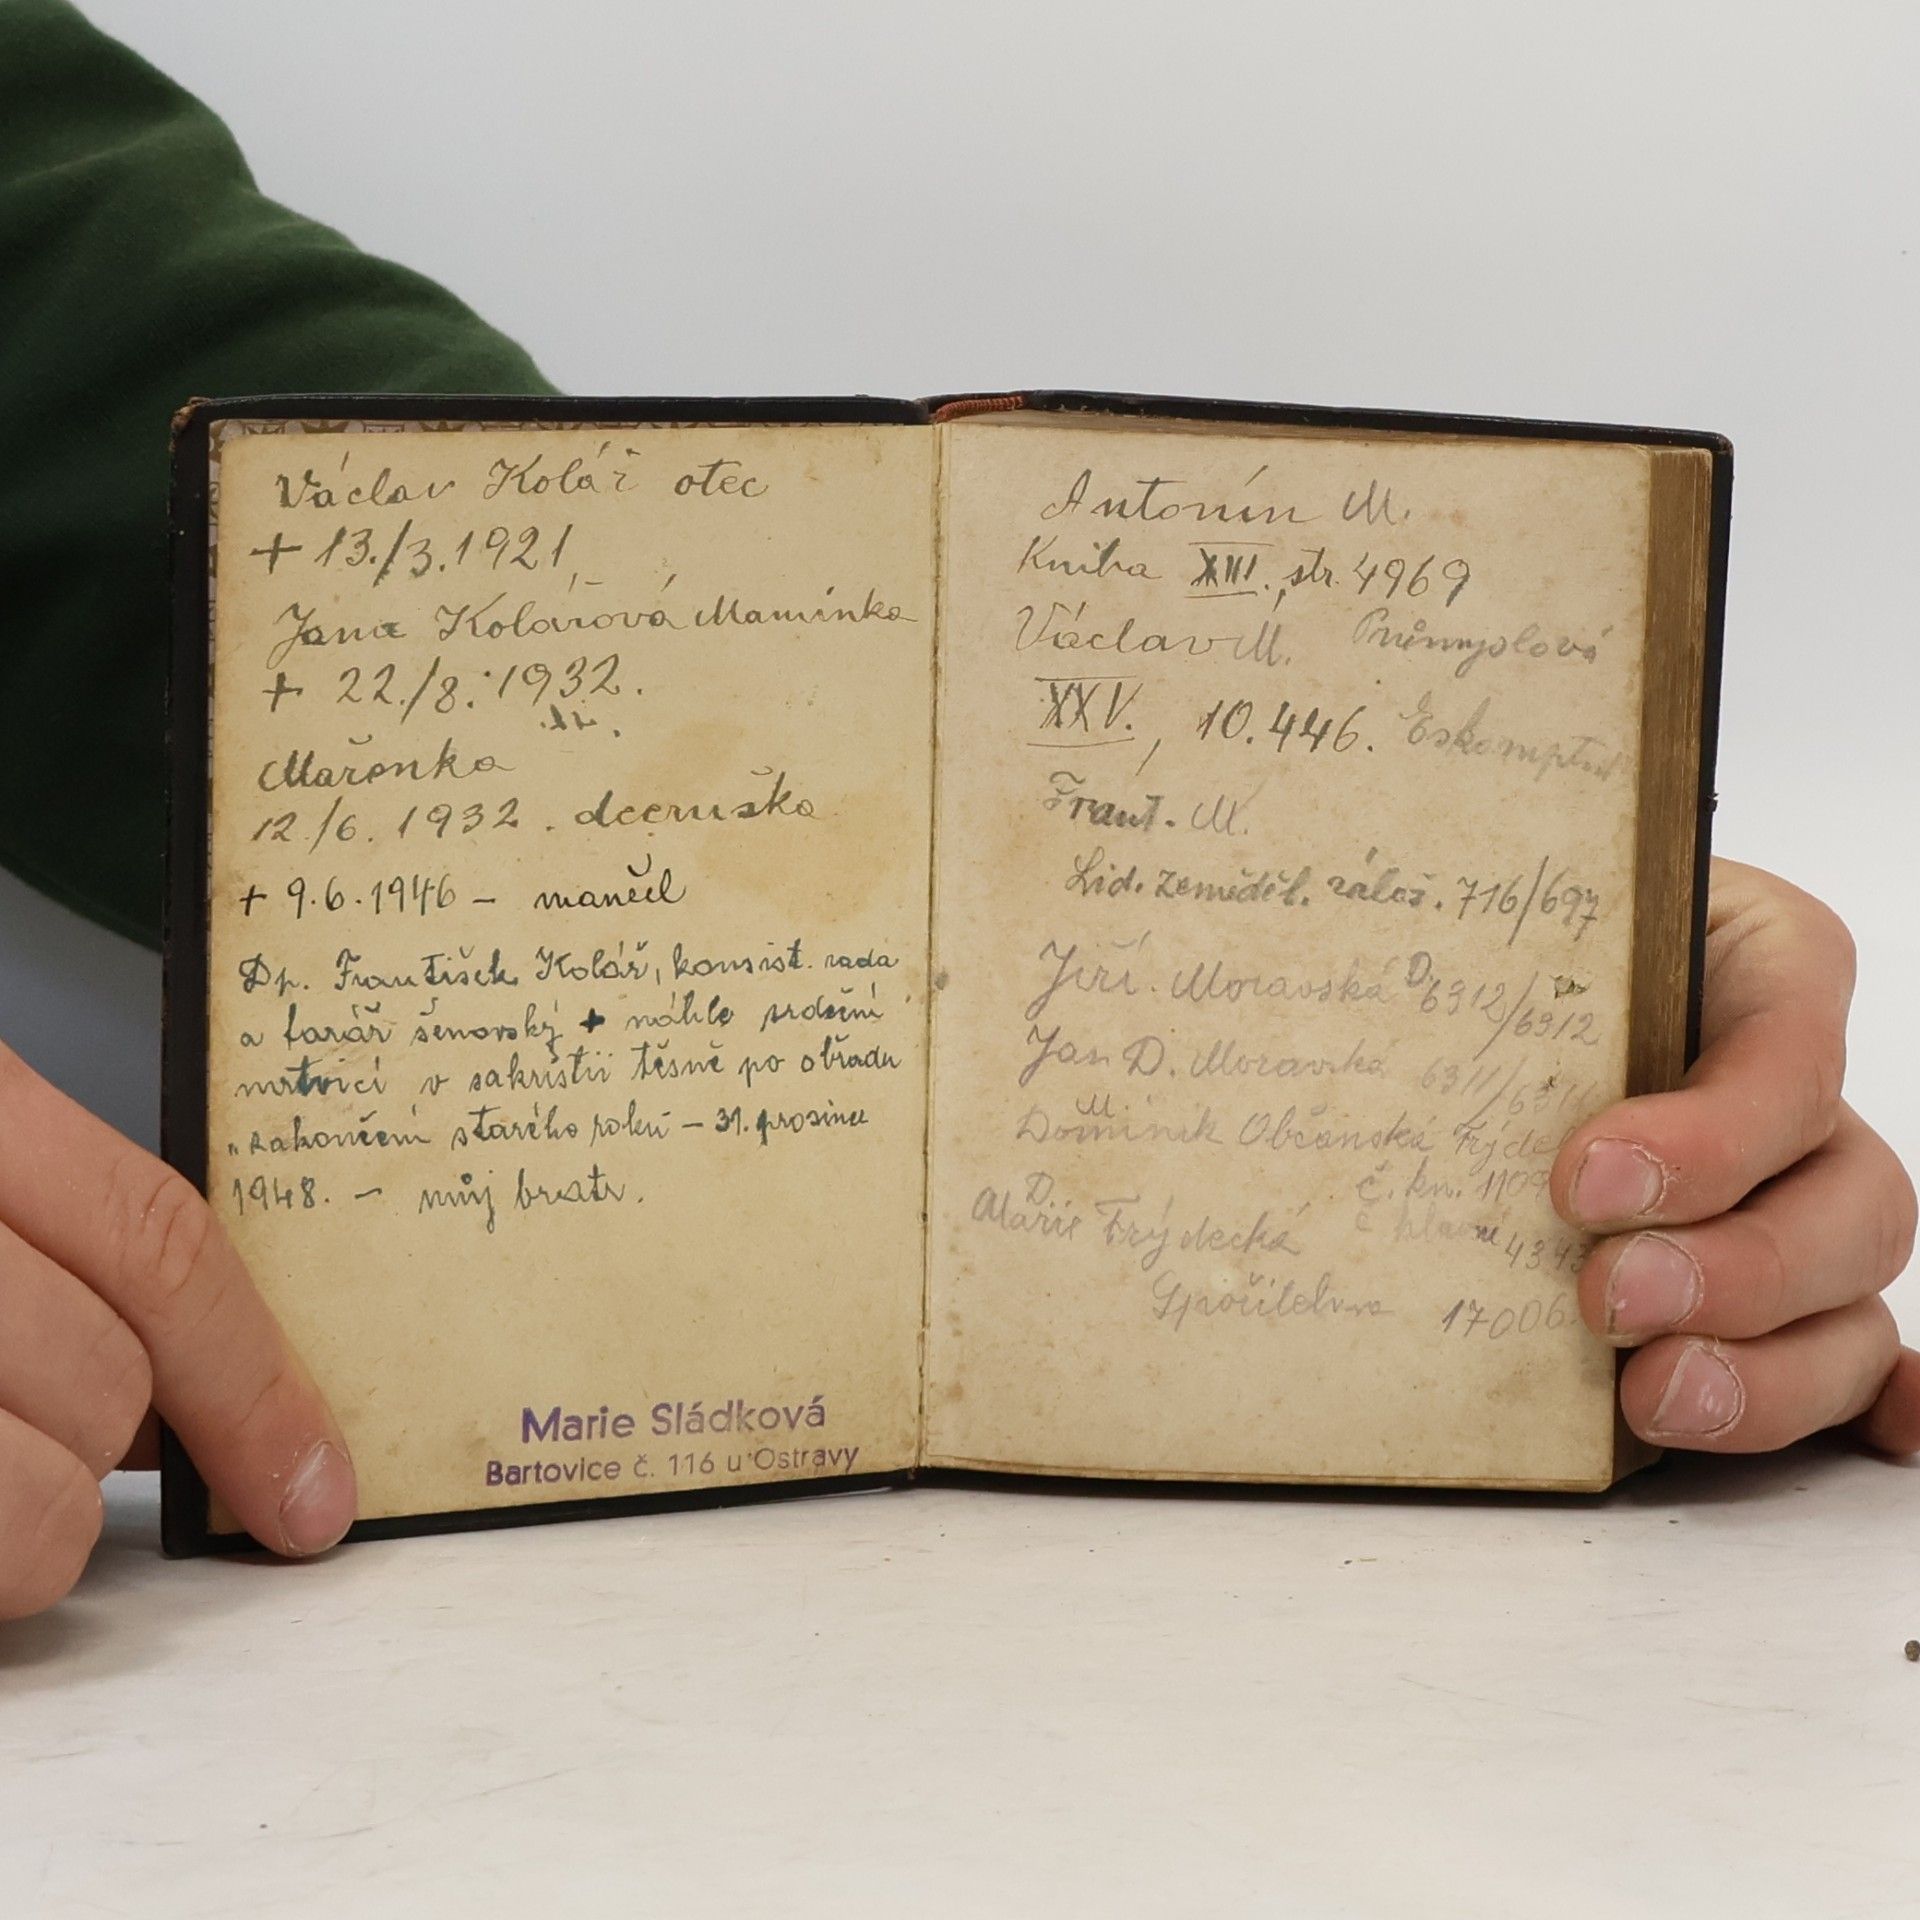 Václav Kolář otec
+ 13./3.1921
Jana Kolářová Maminka
+ 22./8. 1932.
Mařenka
12./6. 1932. dceruška
+ 9.6.1946 – manžel
Dp. František Kolář, konsist. rada
a farář šenovský + náhle srdeční
mrtvicí v sakristii těsně po obřadu
„zakončení starého roku – 31. prosince
1948. – můj bratr.
Marie Sládková
Bartovice č. 116 u Ostravy
Antonín M.
Kniha XIII. str. 4969
Václav M. Průmyslová
XXV., 10.446. Eskomptní
Frant. M.
Lid. Zeměděl. zálož. 716/697
Jiří D. Moravská 6312/6312
Jan D. Moravská 6311/6311
Dominik M. Občanská Frýdek
č. kn. 1109
Marie D. Frýdecká č hlavní 4343
Spořitelna 17006